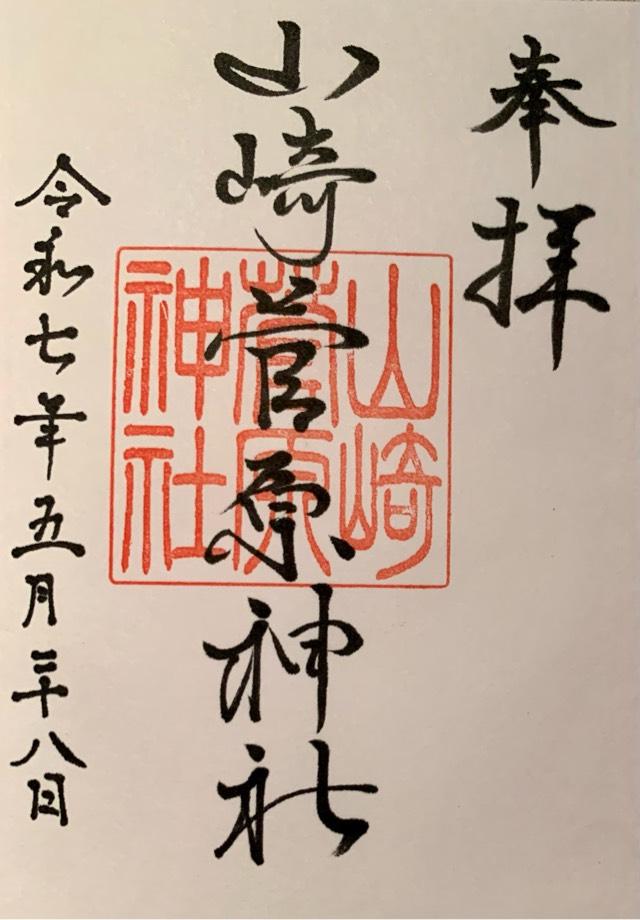 奉拝
山崎菅原神社
山崎
菅原
神社
令和七年五月二十八日